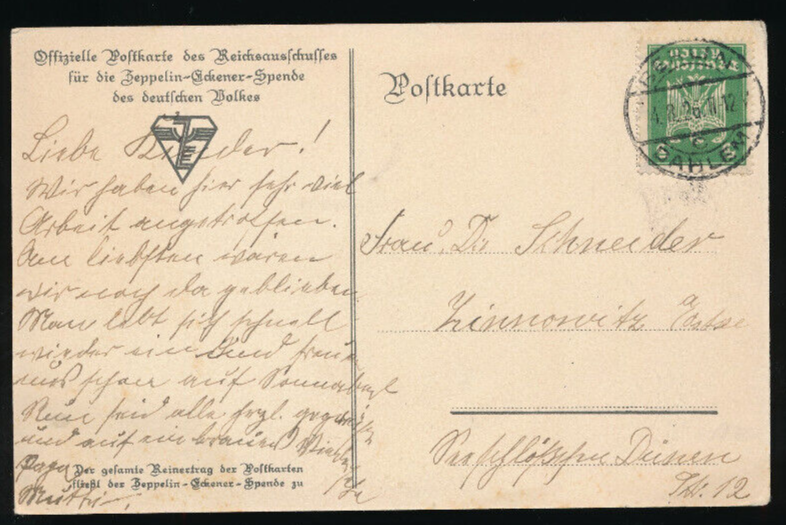 Offizielle Postkarte des Reichsausschusses
für die Zeppelin-Eckener-Spende
des deutschen Volkes
Postkarte
DAHLEM
Liebe Kinder!
Wir haben hier sehr viel
Arbeit angetroffen.
Am liebsten wären
wir noch da geblieben.
Man lebt sich schnell
wieder ein und freuen
uns schon auf Sonnabend
Nun seid alle hrzl.
und auf ein
Papa
Mutti.
Frau Dr. Schneider
Zinnowitz Ostsee
Seeschlößchen Dünen
Str. 12
Der gesamte Reinertrag der Postkarten
fließt der Zeppelin-Eckener-Spende zu